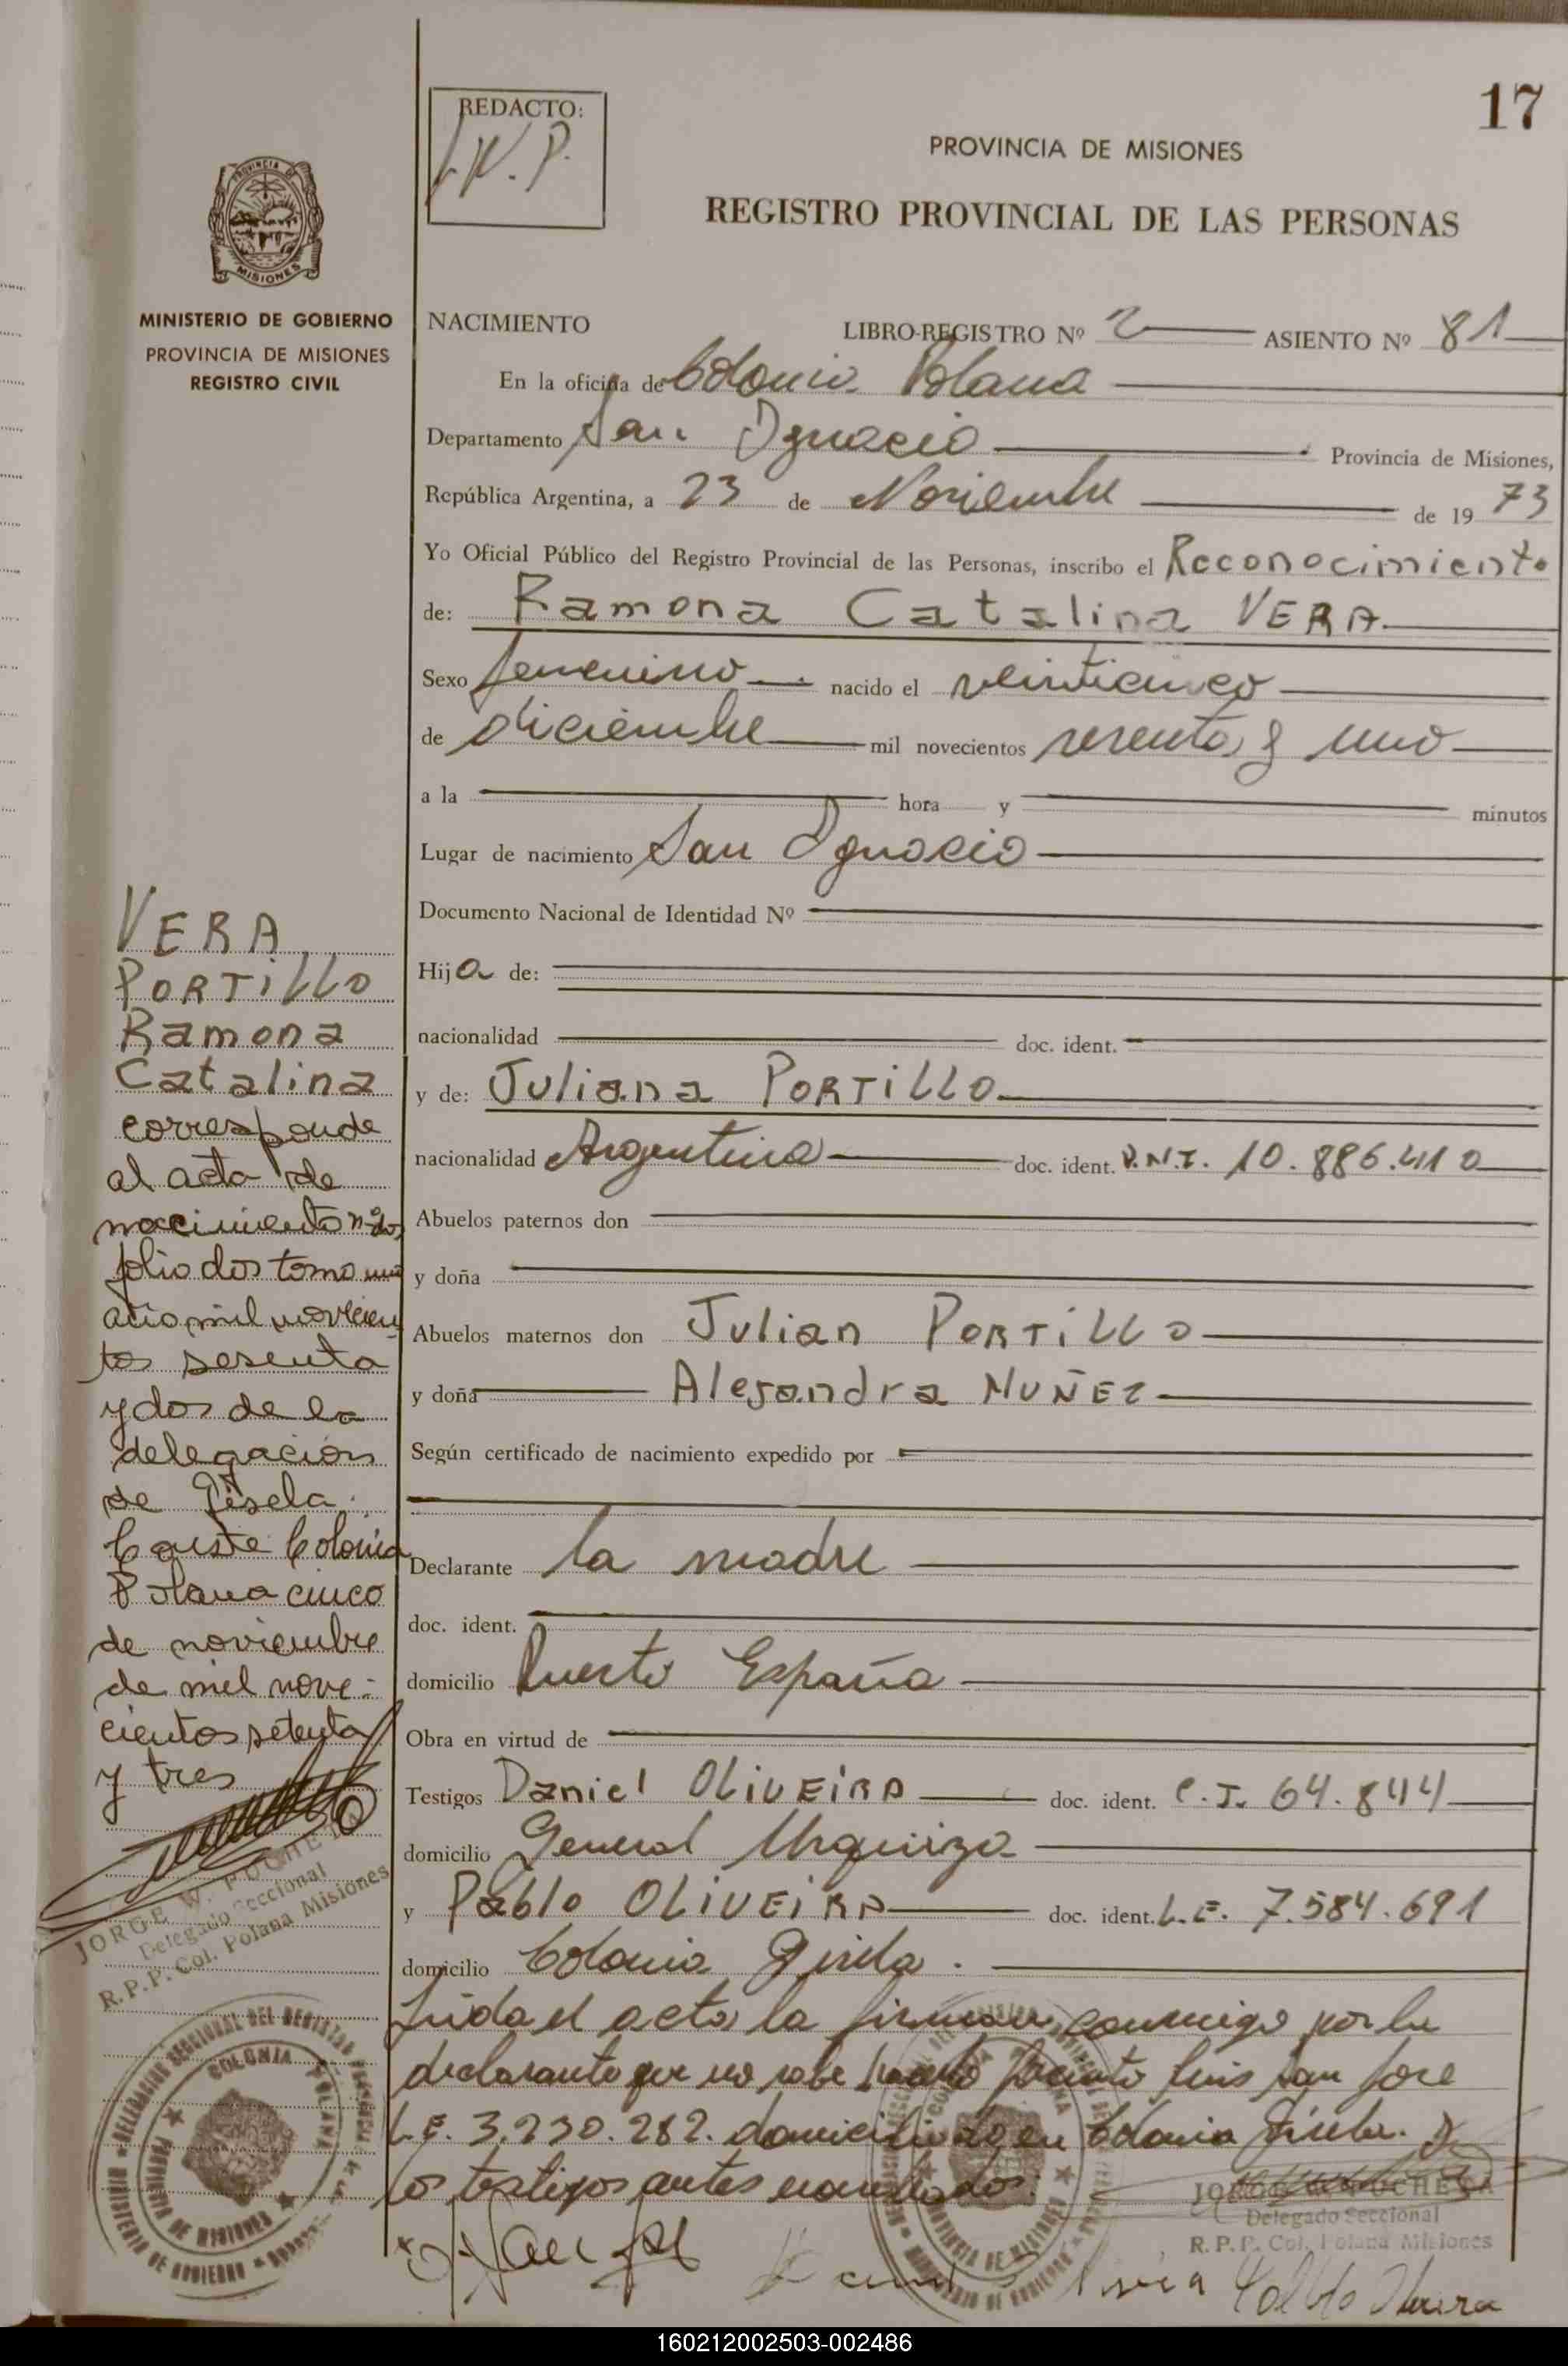 17
REDACTO:
PROVINCIA DE MISIONES
REGISTRO PROVINCIAL DE LAS PERSONAS
PROVINCIA DE
MISIONES
MINISTERIO DE GOBIERNO
PROVINCIA DE MISIONES
REGISTRO CIVIL
NACIMIENTO LIBRO-REGISTRO Nº 2 ASIENTO Nº 81
En la oficina de Colonia Polana
Departamento San Ignacio Provincia de Misiones,
República Argentina, a 23 de Noviembre de 19 73
Yo Oficial Público del Registro Provincial de las Personas, inscribo el Reconocimiento
de: Ramona Catalina VERA
Sexo femenino nacido el veinticinco
de diciembre mil novecientos sesenta y uno
a la hora y minutos
Lugar de nacimiento San Ignacio
Documento Nacional de Identidad Nº
Hija de:
nacionalidad doc. ident.
y de: Juliana PORTILLO
nacionalidad Argentina doc. ident. D.N.I. 10.886.410
Abuelos paternos don
y doña
Abuelos maternos don Julian PORTILLO
y doña Alejandra NUÑEZ
Según certificado de nacimiento expedido por
Declarante la madre
doc. ident.
domicilio Puerto España
Obra en virtud de
Testigos Daniel OLIVEIRA doc. ident. C.I. 64.844
domicilio General Urquiza
y Pablo OLIVEIRA doc. ident. L.E. 7.584.691
domicilio Colonia Gisela.
Leida el acta la firman conmigo por la
declarante que no sabe hacerlo Jacinto Luis San Jose
L.E. 3.230.282. domiciliado en Colonia Gisela. y
los testigos antes nombrados.
VERA
PORTILLO
Ramona
Catalina
corresponde
al acta de
nacimiento nº dos
folio dos tomo uno
año mil novecien
tos sesenta
y dos de la
delegación
de Gisela.
Conste Colonia
Polana cinco
de noviembre
de mil nove-
cientos setenta
y tres
JORGE W.
Delegado Seccional
R.P.P. Col. Polana Misiones
COLONIA POLANA
PROVINCIA DE MISIONES
Delegado Seccional
R.P.P. Col. Polana Misiones
160212002503-002486